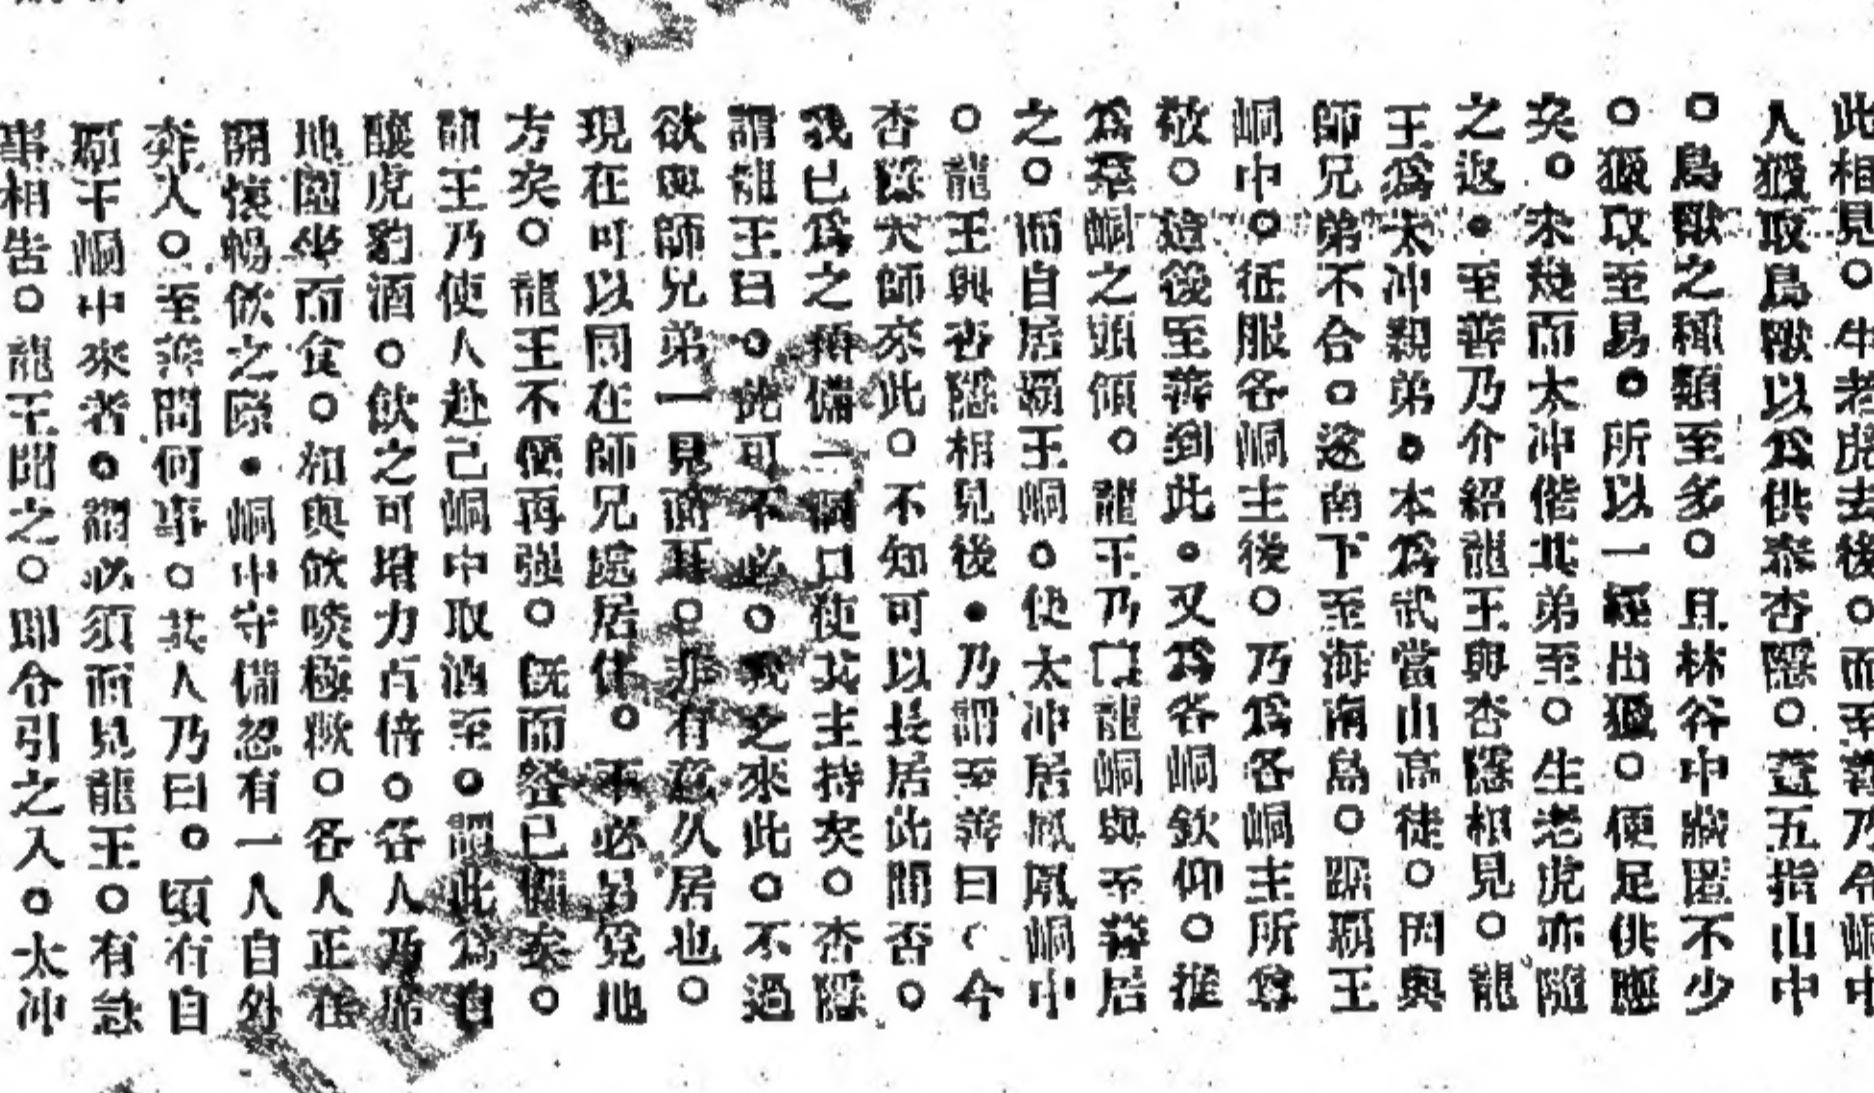 此相見○牛老虎去後○而至善乃令峒中
人獵取鳥獸以爲供泰杏隱○蓋五指山中
○鳥獸之種類至多○且林谷中藏匿不少
○獵取至易○所以一經出獵○便足供應
矣○未幾而太冲偕其弟至○生老虎亦隨
之返●至善乃介紹龍王與杏隱相見○龍
王爲太冲親弟●本爲武當山高徒○因與
師兄弟不合○遂南下至海南島○踞瓊王
峒中○征服各峒主後○乃爲各峒主所尊
敬○這後至善到此●又爲各峒欽仰○推
爲羣峒之頭領○龍王乃 龍峒與至善居
之○而自居瓊王峒○使太冲居鳳凰峒中
○龍王與杏隱相見後●乃謂至善曰 今
杏隱大師來此○不知可以長居此間否○
我已爲之預備一峒口使其主持矣○杏隱
謂龍王曰○此可不必○我之來此○不過
欲與師兄弟一見面耳○非有意久居也○
現在可以同在師兄處居住○不必另覓地
方矣○龍王不便再強○既而餐已備妥○
龍王乃使人赴己峒中取酒至○謂此爲自
釀虎豹酒○飲之可增力百倍○各人乃席
地圍坐而食○相與飲啖極歡○各人正在
開懷暢飲之際●峒中守備忽有一人自外
奔入○至善問何事○其人乃曰○頃有自
瓊王峒中來者○謂必須面見龍王○有急
事相告○龍王聞之○即令引之入○太冲